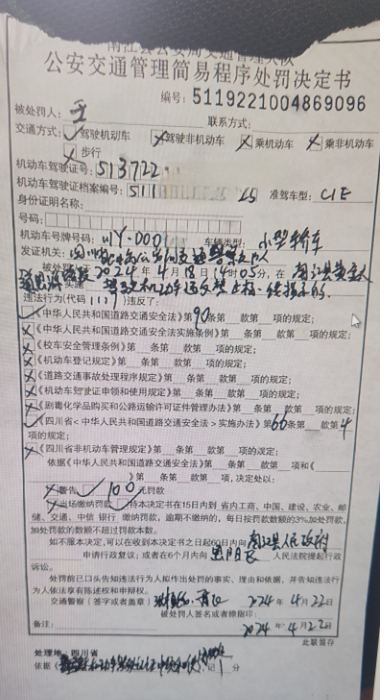 南江县公安局交通管理大队
公安交通管理简易程序处罚决定书
编号: 5119221004869096
被处罚人: 王 联系方式:
交通方式: ✓驾驶机动车 ×驾驶非机动车 ×乘机动车 ×乘非机动车
×步行
机动车驾驶证号: 513722
机动车驾驶证档案编号: 511 准驾车型: C1E
身份证明名称:
号码:
机动车号牌号码: 川Y·D001 车辆类型: 小型轿车
发证机关:
2024年4月18日14时03分, 在 南江县
违法行为(代码 )违反了:
✓《中华人民共和国道路交通安全法》第90条第 款第 项的规定;
×《中华人民共和国道路交通安全法实施条例》第 条第 款第 项的规定;
×《校车安全管理条例》第 条第 款第 项的规定;
×《机动车登记规定》第 条第 款第 项的规定;
×《道路交通事故处理程序规定》第 条第 款第 项的规定;
×《机动车驾驶证申领和使用规定》第 条第 款第 项的规定;
×《剧毒化学品购买和公路运输许可证件管理办法》第 条第 款第 项的规定;
✓《四川省<中华人民共和国道路交通安全法>实施办法》第60条第 款第4
项的规定;
×《四川省非机动车管理规定》第 条第 款第 项的规定;
依据《中华人民共和国道路交通安全法》第 条第 款第 项和《
》第 条第 款第 项, 决定处以:
×警告 ✓100元罚款
×当场缴纳罚款 ✓持本决定书在15日内到 省内工商、中国、建设、农业、邮
储、交通、中信 银行 缴纳罚款, 逾期不缴纳的, 每日按罚款数额的3%加处罚款,
加处罚款的数额不超过罚款本数。
如不服本决定, 可以在收到本决定书之日起60日内向 南江县人民政府
申请行政复议; 或者在6个月内向 人民法院提起行政
诉讼。
处罚前已口头告知违法行为人拟作出处罚的事实、理由和依据, 并告知违法行
为人依法享有陈述权和申辩权。
交通警察(签字或者盖章) 2024年4月22日
被处罚人签名或者捺指印:
备注: 2024年4月22日
此联留存
处理地: 四川省
依据《 》记1分